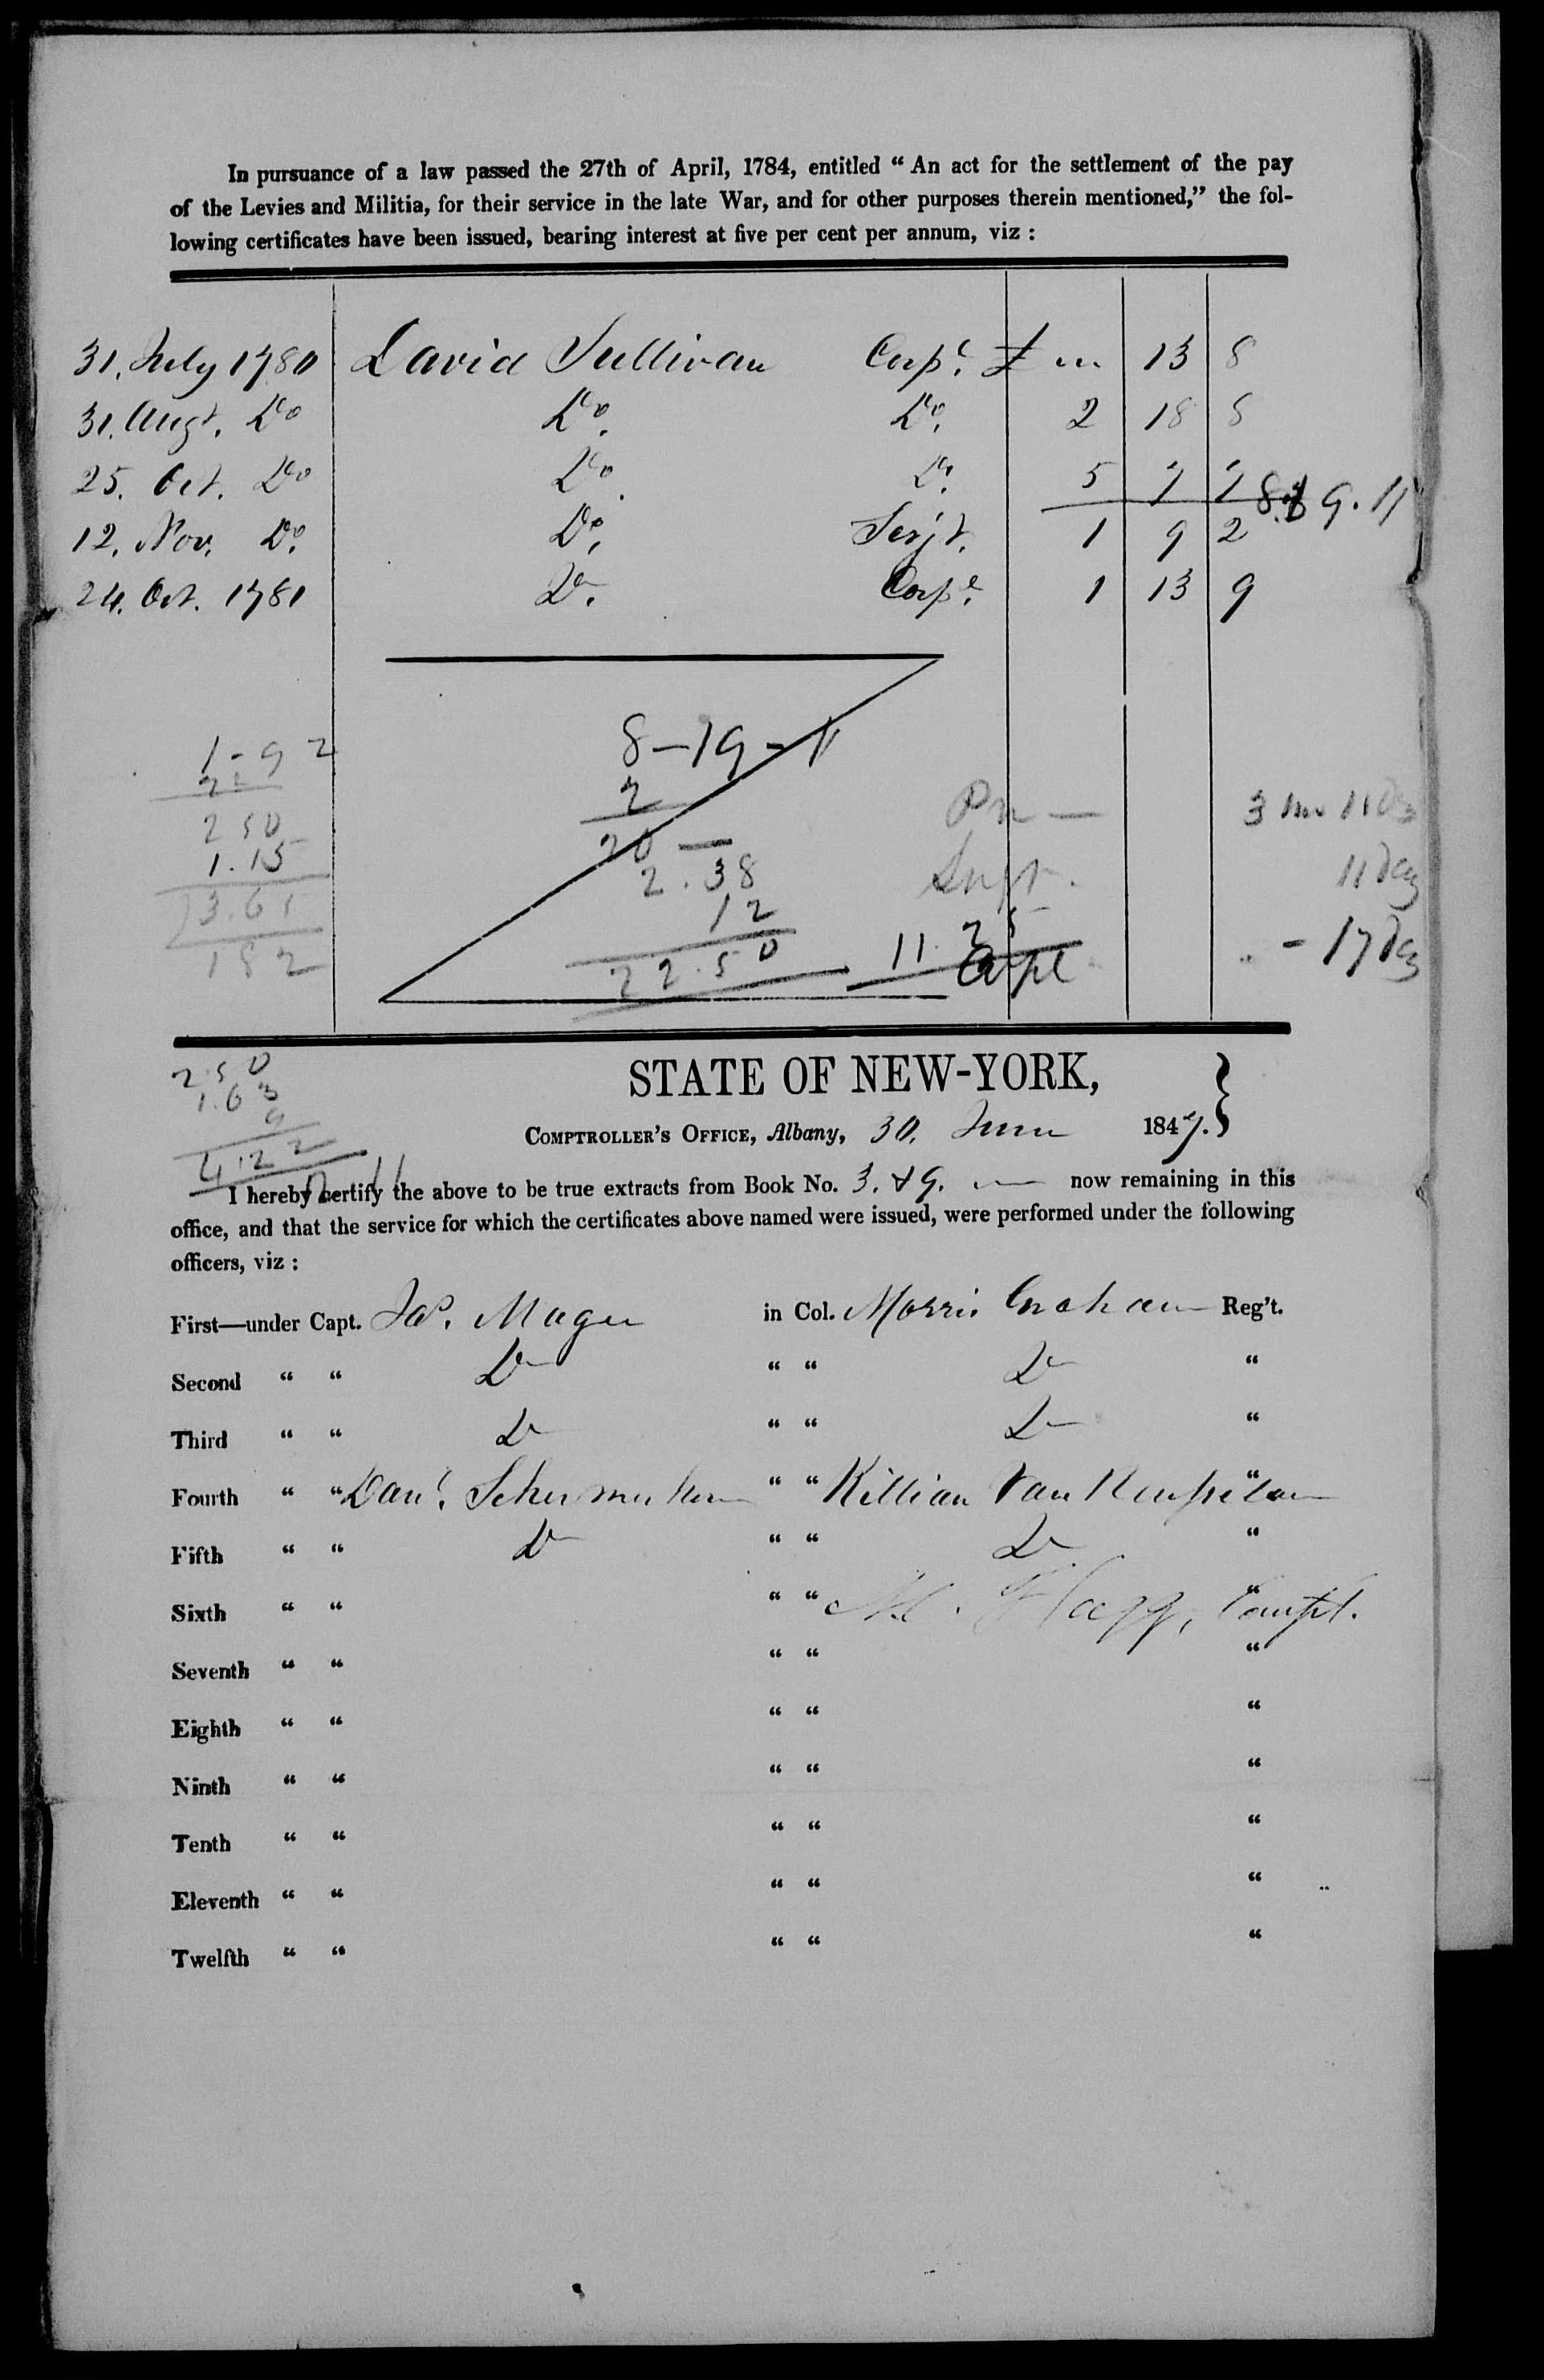 In pursuance of a law passed the 27th of April, 1784, entitled “ An act for the settlement of the pay
of the Levies and Militia, for their service in the late War, and for other purposes therein mentioned,” the fol-
lowing certificates have been issued, bearing interest at five per cent per annum, viz :
31. July 1780 David Sullivan Corpl. £ " 13 8
31. Augt. Do Do. Do. 2 18 8
25. Oct. Do Do. Do. 5 7 7
12. Nov. Do. Do. Serjt. 1 9 2
24. Oct. 1781 Do. Corpl. 1 13 9
1-9 2
8-19-11
2
2
20 —
250
2.38
1.15
12
3.61
22.50
182
11 25
Corpl
11 day
- 17 day
2.50
1.63
9
4.22
STATE OF NEW-YORK,
COMPTROLLER'S OFFICE, Albany, 30. June 1847.
I hereby certify the above to be true extracts from Book No. 3. & 9. now remaining in this
office, and that the service for which the certificates above named were issued, were performed under the following
officers, viz :
First—under Capt. Jas. Magee in Col. Morris Graham Reg't.
Second “ “ Do “ “ Do “
Third “ “ Do “ “ Do “
Fourth “ “ Danl. Schermerhorn “ “ Killian Van Rensselaer “
Fifth “ “ Do “ “ Do “
Sixth “ “ “ “ Flagg, Compt. “
Seventh “ “ “ “ “
Eighth “ “ “ “ “
Ninth “ “ “ “ “
Tenth “ “ “ “ “
Eleventh “ “ “ “ “
Twelfth “ “ “ “ “